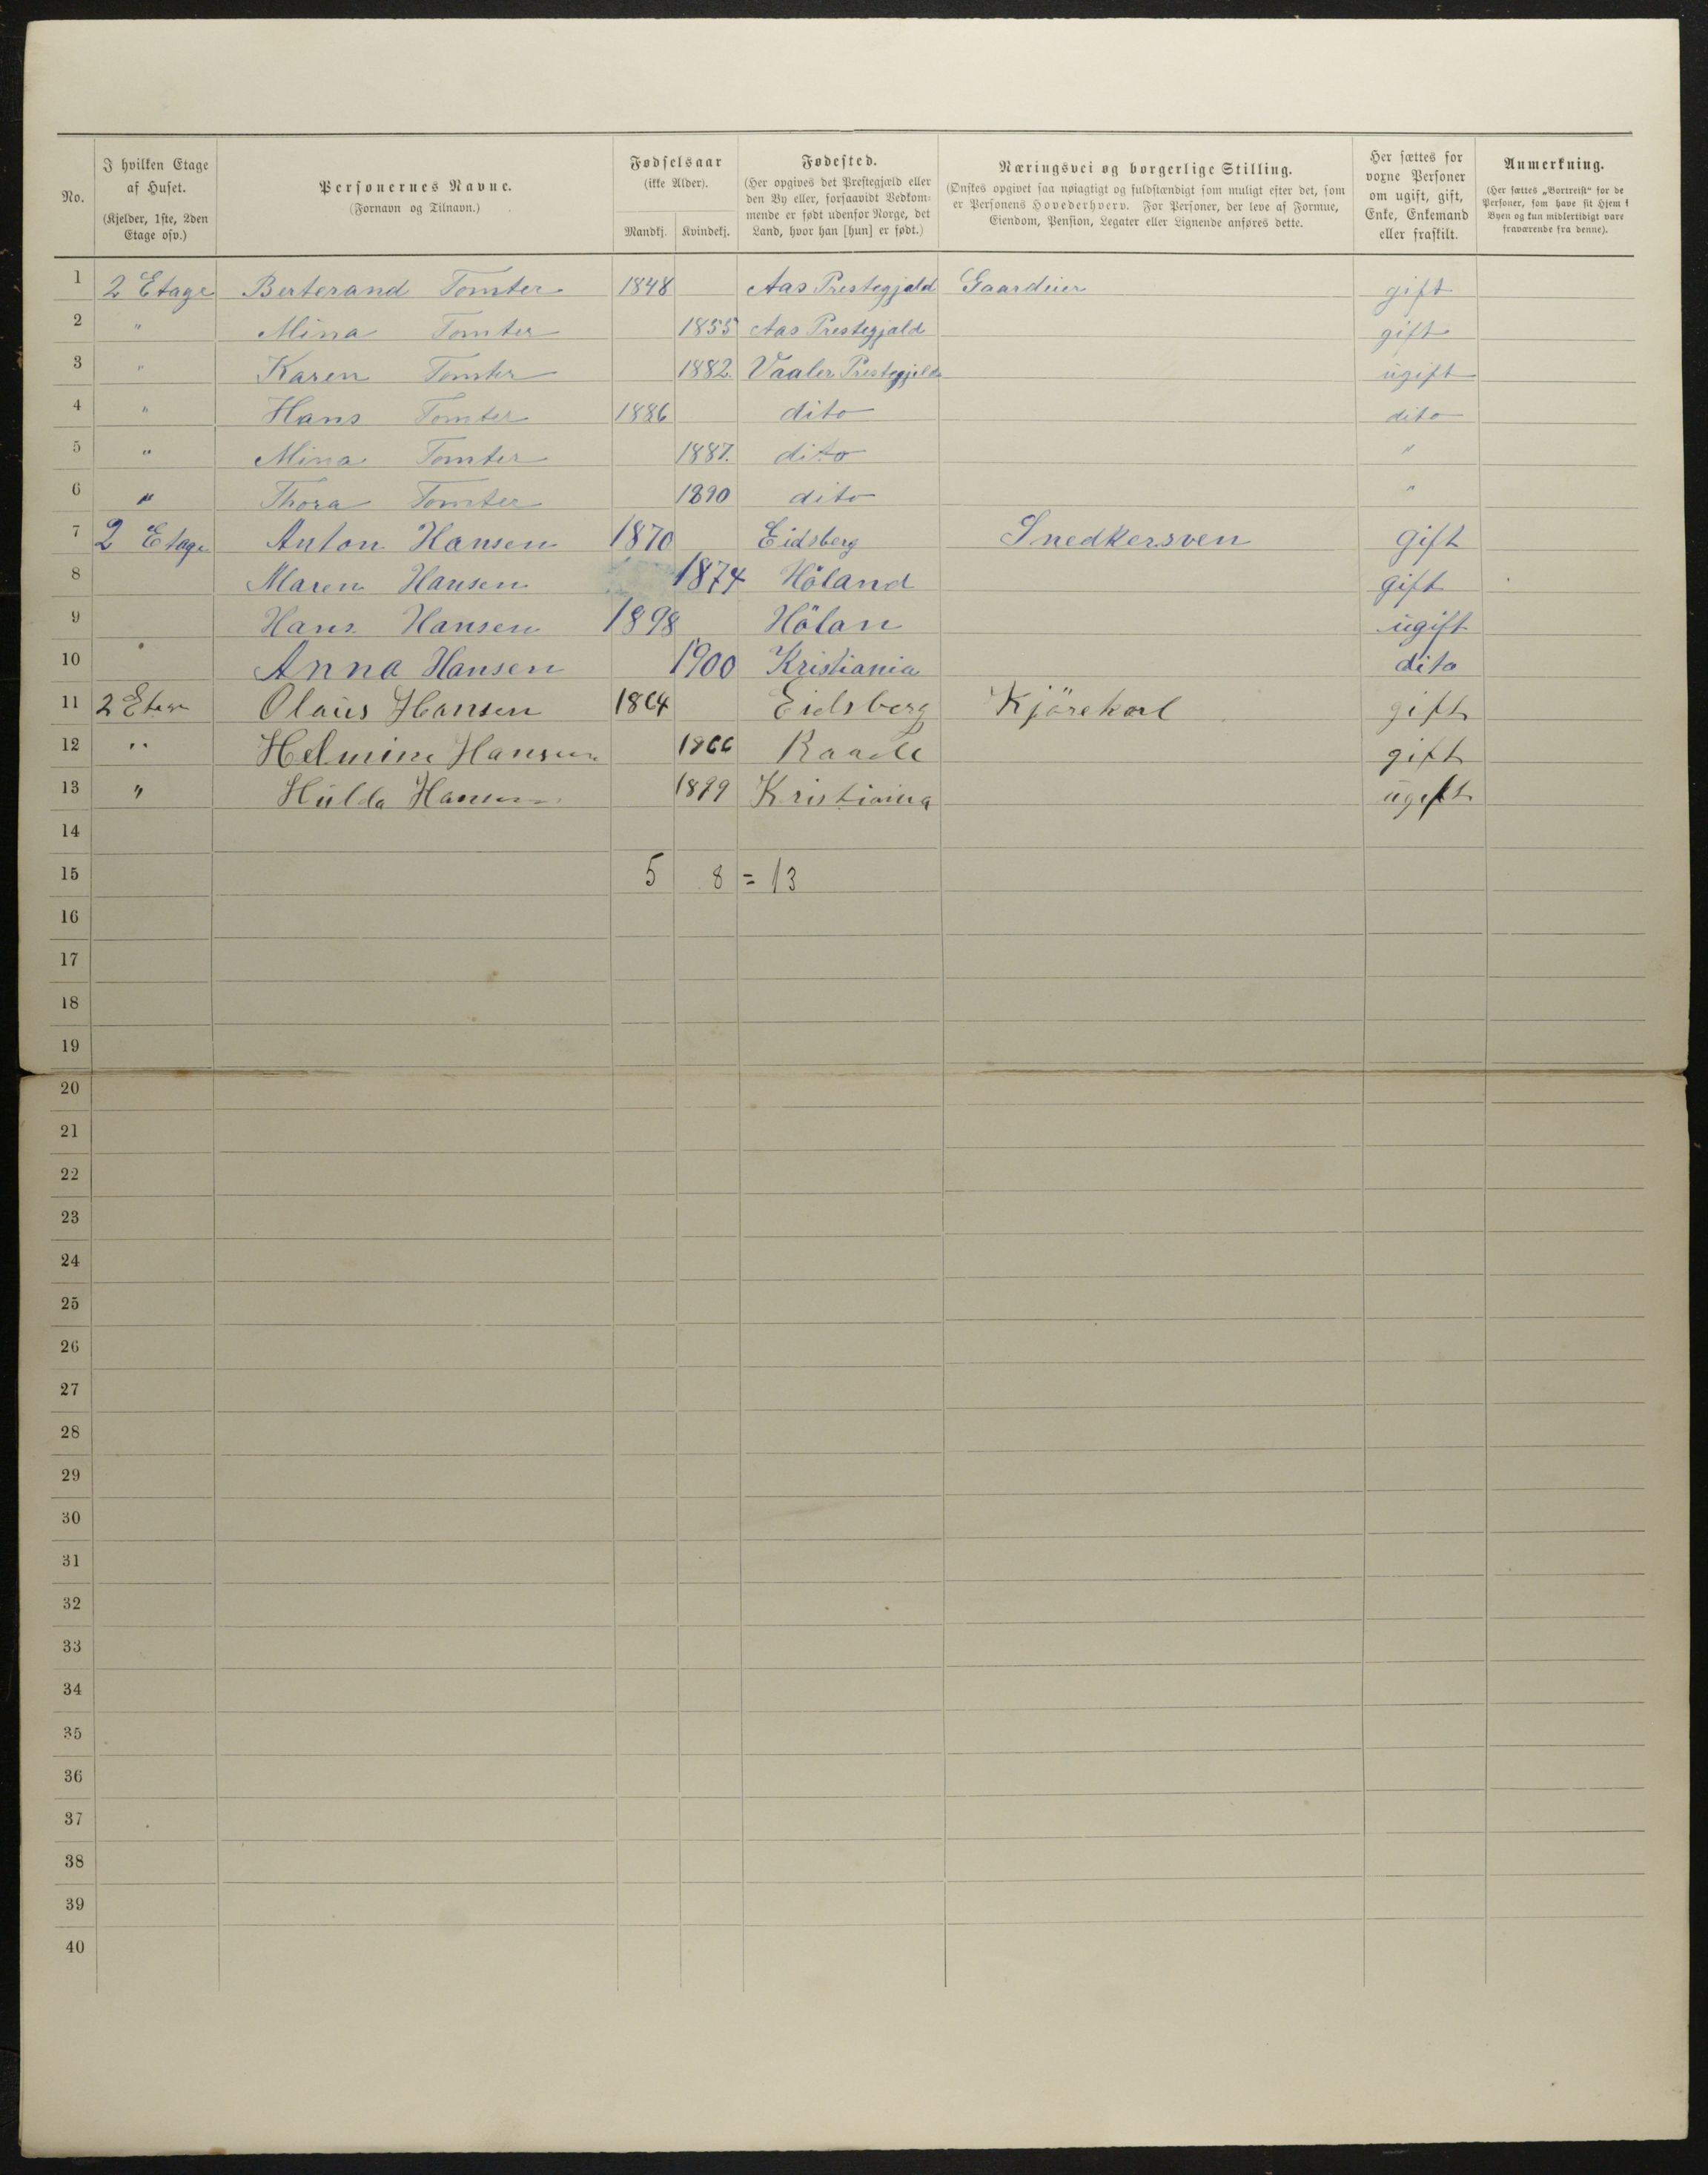 No.
I hvilken Etage af Huset. (Kjelder, 1ste, 2den Etage osv.)
Personernes Navne. (Fornavn og Tilnavn.)
Fødselsaar (ikke Alder).
Mandkj. Kvindekj.
Fødested. (Her opgives det Prestegjæld eller den By eller, forsaavidt Vedkommende er født udenfor Norge, det Land, hvor han [hun] er født.)
Næringsvei og borgerlige Stilling. (Ønskes opgivet saa nøiagtigt og fuldstændigt som muligt efter det, som er Personens Hovederhverv. For Personer, der leve af Formue, Eiendom, Pension, Legater eller Lignende anføres dette.
Her sættes for voxne Personer om ugift, gift, Enke, Enkemand eller fraskilt.
Anmerkning. (Her sættes „Bortreist“ for de Personer, som have sit Hjem i Byen og kun midlertidigt være fraværende fra denne).
1 2 Etage Berterand Tomter 1848 Aas Prestegjæld Gaardeier gift
2 " Mina Tomter 1855 Aas Prestegjæld gift
3 " Karen Tomter 1882. Vaaler Prestegjeld ugift
4 " Hans Tomter 1886 dito dito
5 " Mina Tomter 1887. dito "
6 " Thora Tomter 1890 dito "
7 2 Etage Anton Hansen 1870 Eidsberg Snedkersven gift
8 Maren Hansen 1874 Höland gift
9 Hans Hansen 1898 Hölan ugift
10 Anna Hansen 1900 Kristiania dito
11 2 Etage Olaus Hansen 1864 Eidsberg Kjörekarl gift
12 " Helmine Hansen 1866 Raade gift
13 " Hulda Hansen 1899 Kristiania ugift
14
15 5 8 = 13
16
17
18
19
20
21
22
23
24
25
26
27
28
29
30
31
32
33
34
35
36
37
38
39
40